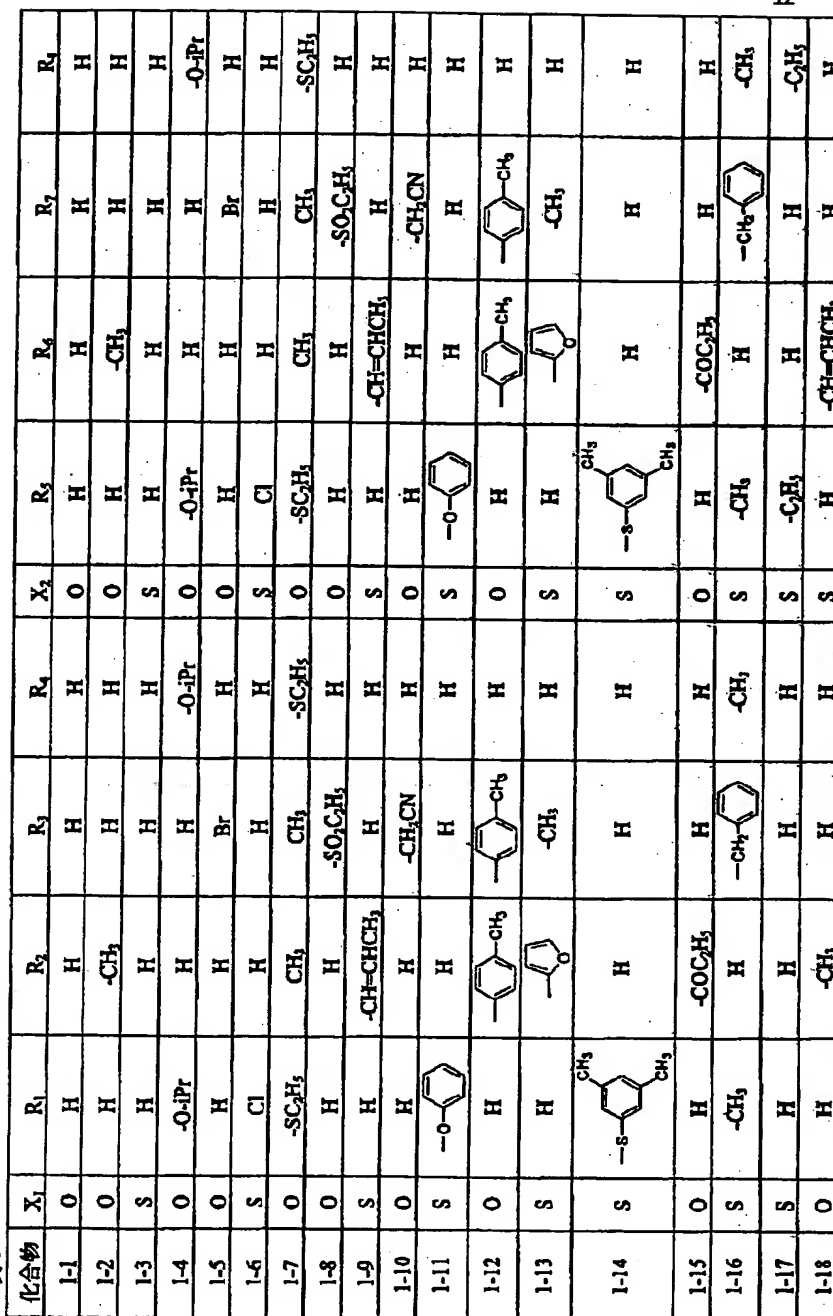 化合物 X₁ R₁ R₂ R₃ R₄ X₂ R₅ R₆ R₇ R₄
1-1 O H H H H O H H H H
1-2 O H -CH₃ H H O H -CH₃ H H
1-3 S H H H H S H H H H
1-4 O -O-iPr H H -O-iPr O -O-iPr H H -O-iPr
1-5 O H H Br H O H H Br H
1-6 S Cl H H H S Cl H H H
1-7 O -SC₂H₅ CH₃ CH₃ -SC₂H₅ O -SC₂H₅ CH₃ CH₃ -SC₂H₅
1-8 O H H -SO₂C₂H₅ H O H H -SO₂C₂H₅ H
1-9 S H -CH=CHCH₃ H H S H -CH=CHCH₃ H H
1-10 O H H -CH₂CN H O H H -CH₂CN H
1-11 S —O— H H H S —O— H H H
1-12 O H CH₃ CH₃ H O H CH₃ CH₃ H
1-13 S H O -CH₃ H S H O -CH₃ H
1-14 S —S— CH₃ CH₃ H H H S —S— CH₃ CH₃ H H H
1-15 O H -COC₂H₅ H H O H -COC₂H₅ H H
1-16 S -CH₃ H —CH₂— -CH₃ S -CH₃ H —CH₂— -CH₃
1-17 S H H H H S -C₂H₅ H H -C₂H₅
1-18 O H -CH₃ H H S H -CH=CHCH₃ H H